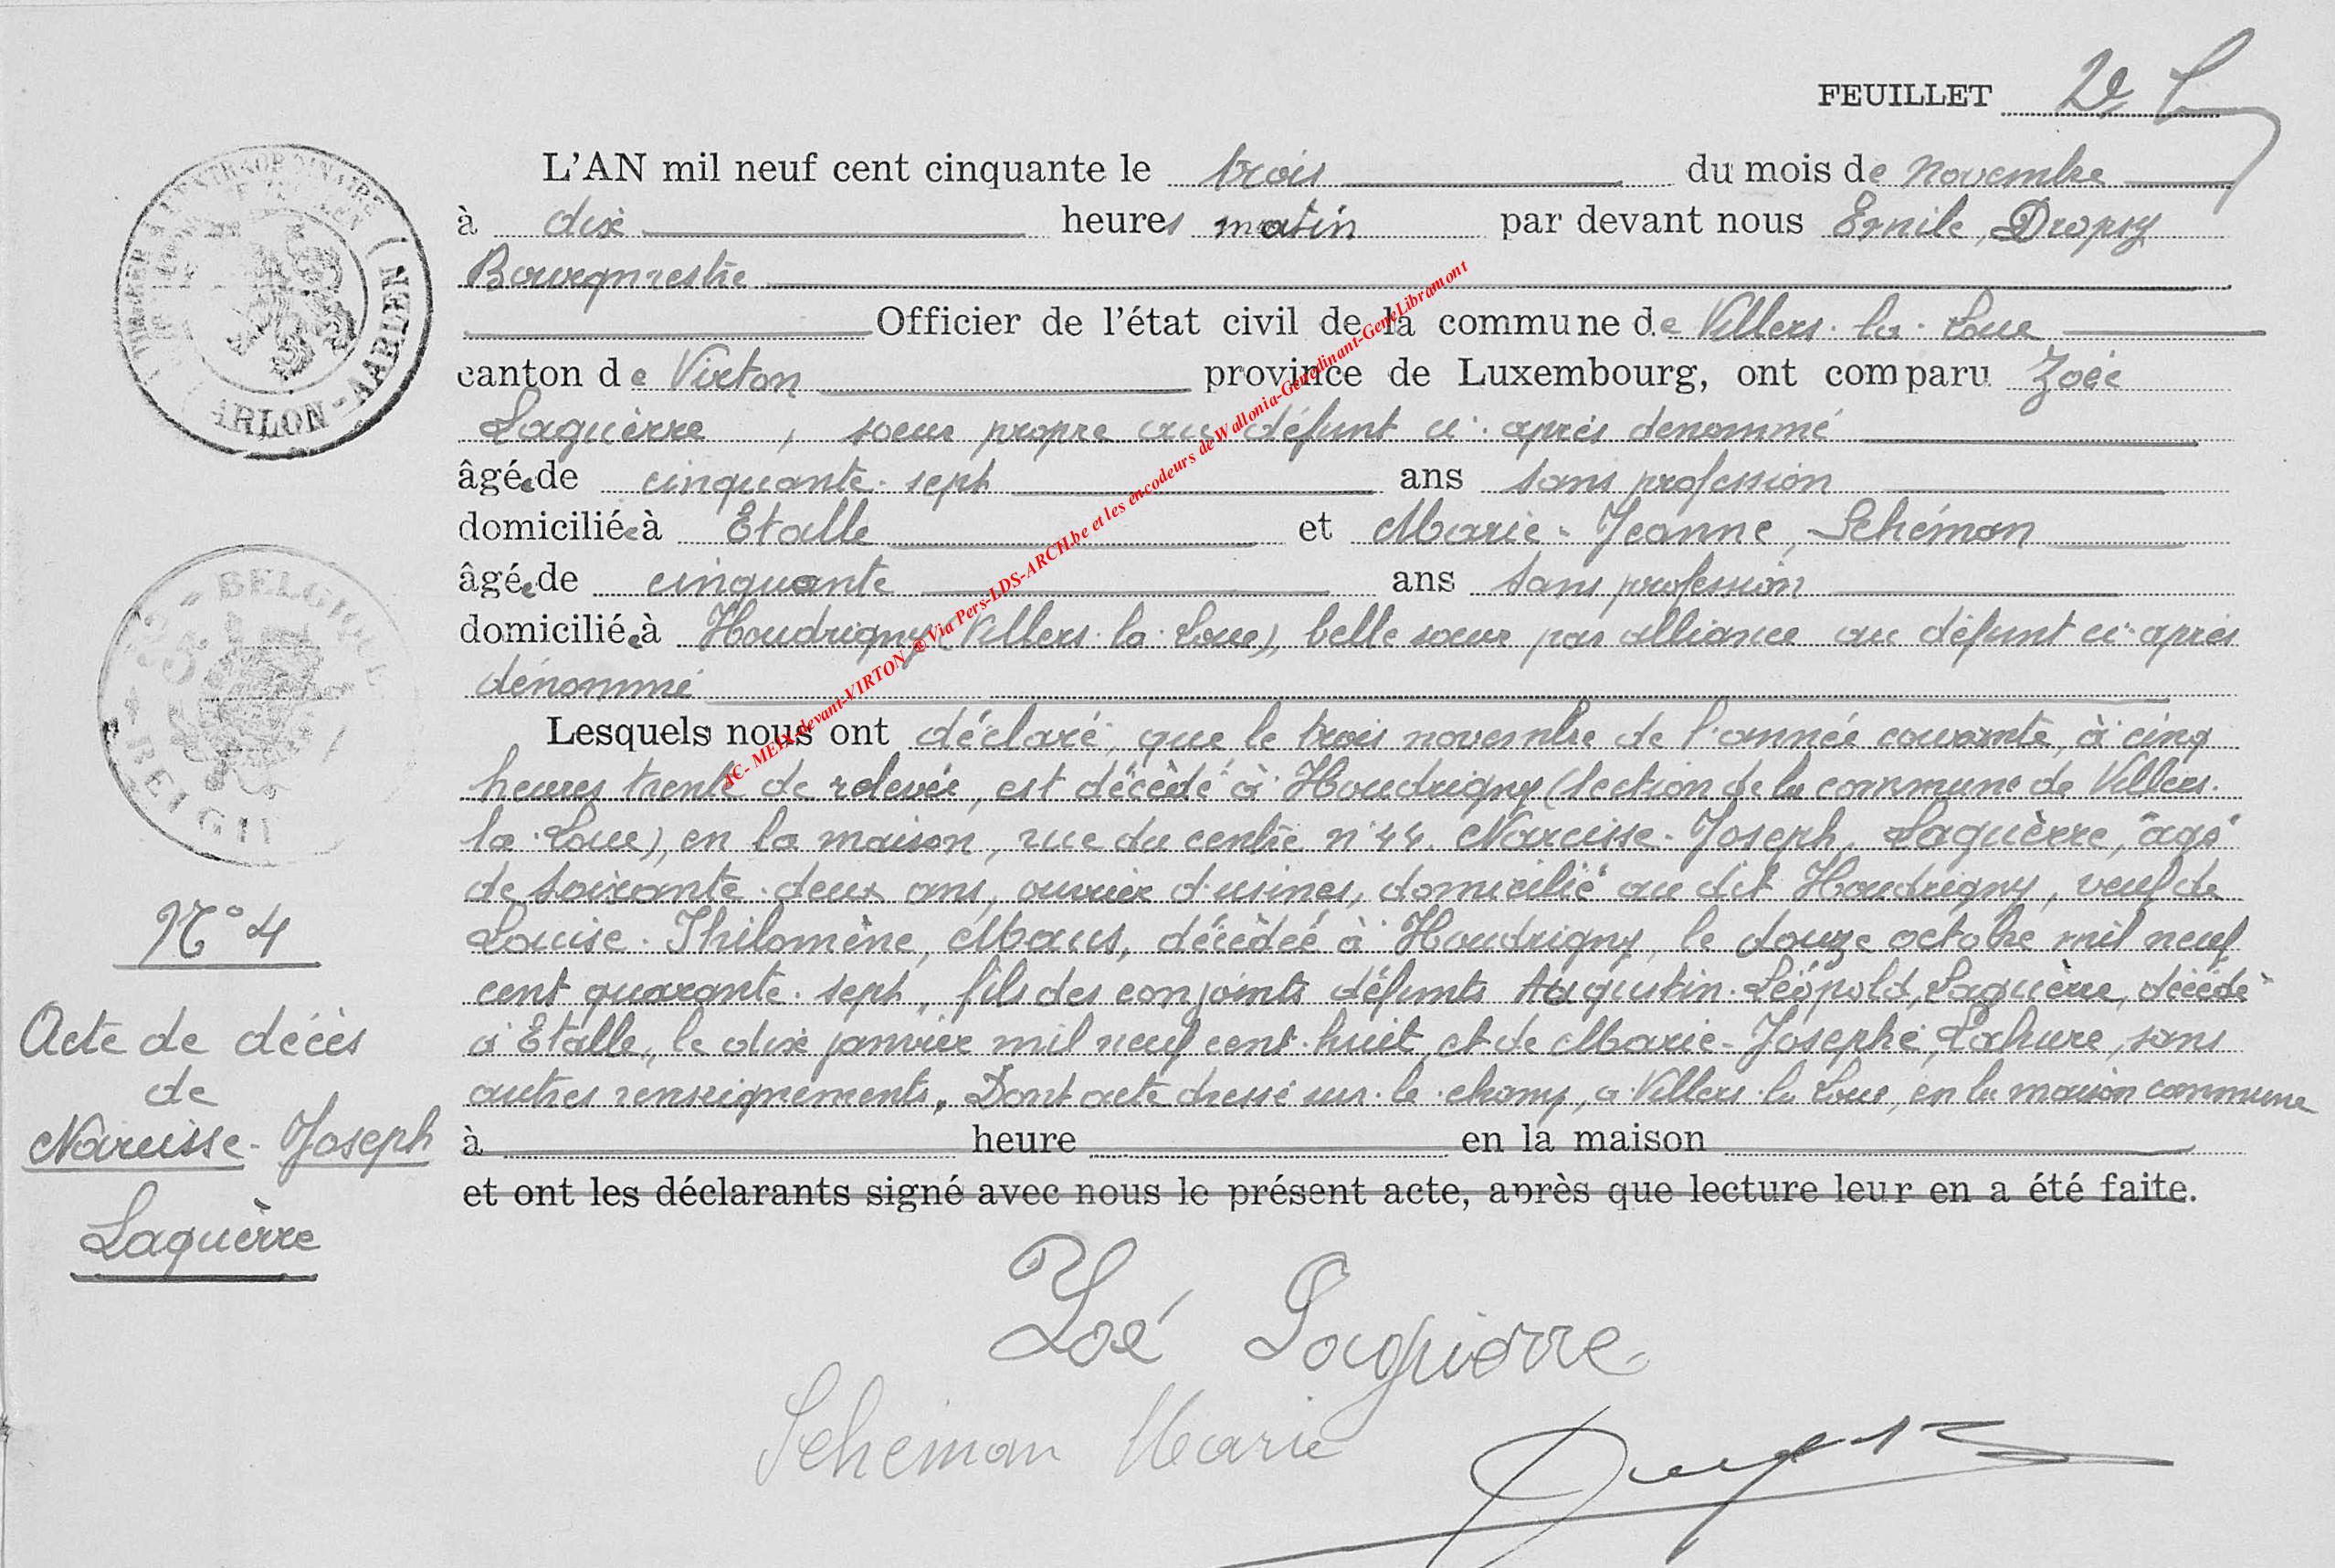 FEUILLET 2
L'AN mil neuf cent cinquante le trois du mois de novembre
à dix heures matin par devant nous Emile, Dropsy
Bourgmestre
Officier de l'état civil de la commune de Villers-la-Loue
canton de Virton province de Luxembourg, ont comparu Zoée
Laguèrre, soeur propre au défunt ci-après denommé
âgée de cinquante-sept ans sans profession
domiciliée à Etalle et Marie-Jeanne, Schéman
âgée de cinquante ans sans profession
domiciliée à Houdrigny (Villers-la-Loue), belle soeur par alliance au défunt ci-après
dénommé
Lesquels nous ont déclaré, que le trois novembre de l'année courante, à cinq
heures trente de relevée, est décèdé à Houdrigny (section de la commune de Villers-
la-Loue), en la maison, rue du centre n°44. Narcisse-Joseph, Laguèrre, âgé
de soixante-deux ans, ouvrier d'usines, domicilié au dit Houdrigny, veuf de
Louise-Philomène, Maus, décèdée à Houdrigny, le douze octobre mil neuf
cent quarante-sept, fils des conjoints défunts Augustin-Léopold, Laguèrre, décédé
à Etalle, le dix janvier mil neuf cent-huit, et de Marie-Josephe, Lahure, sans
autres renseignements. Dont acte dressé sur-le-champ, à Villers-la-Loue, en la maison commune
à heure en la maison
et ont les déclarants signé avec nous le présent acte, après que lecture leur en a été faite.
Zoé Laguierre
Schéman Marie
ARLON-AARLEN
BELGIQUE
BELGIE
N° 4
Acte de décès
de
Narcisse-Joseph
Laguèrre
AC- MEIX-devant-VIRTON @ Via Pers-LDS-ARCH.be et les encodeurs de Wallonia-Genedinant-GeneLibramont